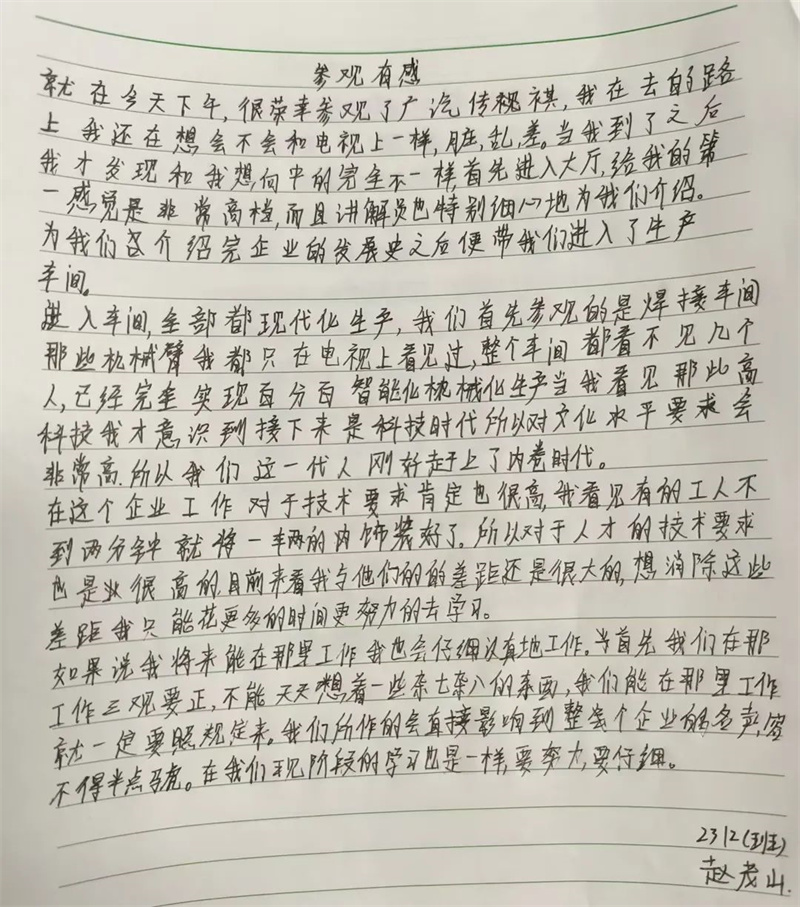 参观有感
就在今天下午，很荣幸参观了广汽传祝祺，我在去的路
上我还在想会不会和电视上一样，脏，乱，差。当我到了之后
我才发现和我想向中的完全不一样，首先进入大厅，给我的第
一感觉是非常高档，而且讲解员也特别细心地为我们介绍。
为我们介绍完企业的发展史之后便带我们进入了生产
车间。
进入车间，全部都现代化生产，我们首先参观的是焊接车间
那些机械臂我都只在电视上看见过，整个车间都看不见几个
人，已经完全实现百分百智能化机械化生产当我看见那些高
科技我才意识到接下来是科技时代所以对文化水平要求会
非常高.所以我们这一代人刚好赶上了内卷时代。
在这个企业工作对于技术要求肯定也很高，我看见有的工人不
到两分钟就将一车辆的内饰装好了.所以对于人才的技术要求
也是很高的，目前来看我与他们的的差距还是很大的，想消除这些
差距我只能花更多的时间更努力的去学习。
如果说我将来能在那里工作我也会仔细认真地工作。当首先我们在那
工作三观要正，不能天天想着一些杂七杂八的东西，我们能在那里工作
就一定要照规定来。我们所作的会直接影响到整个企业的名声，容
不得半点马虎。在我们现阶段的学习也是一样，要努力，要仔细。
2312(班)
赵茂山.